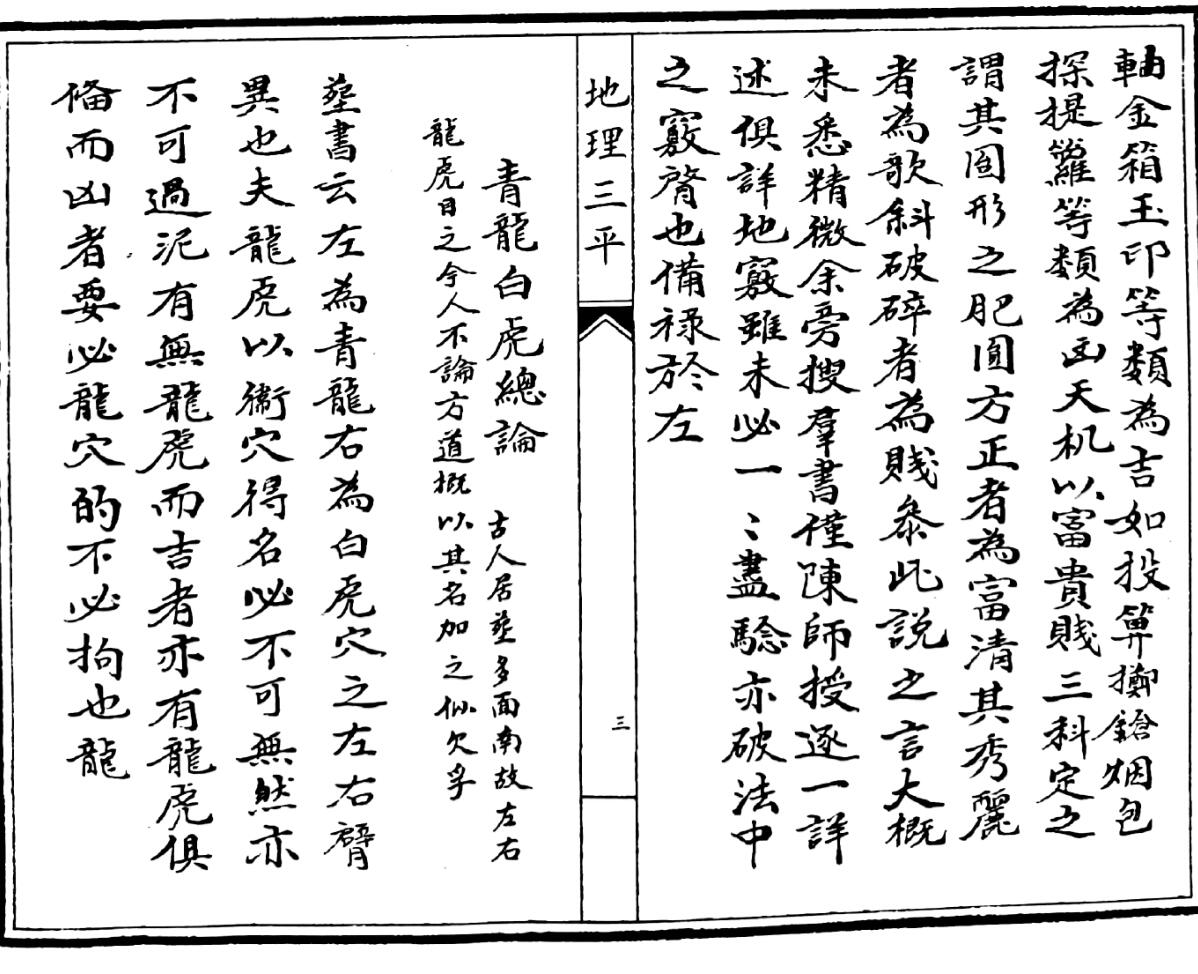 軸金箱玉印等類為吉如投筭擲鎗烟包
探提籮等類為凶天机以富貴賤三科定之
謂其圎形之肥圓方正者為富清其秀麗
者為歌斜破碎者為賤叅此説之言大概
未悉精微余旁搜羣書僅陳師授逐一詳
述俱詳地竅雖未必一〻盡驗亦破法中
之竅膂也備祿於左
地理三平
三
青龍白虎總論 古人居塟多面南故左右
龍虎目之今人不論方道概以其名加之似欠乎
塟書云左為青龍右為白虎穴之左右臂
異也夫龍虎以衛穴得名必不可無然亦
不可過泥有無龍虎而吉者亦有龍虎俱
俻而凶者要必龍穴的不必拘也龍